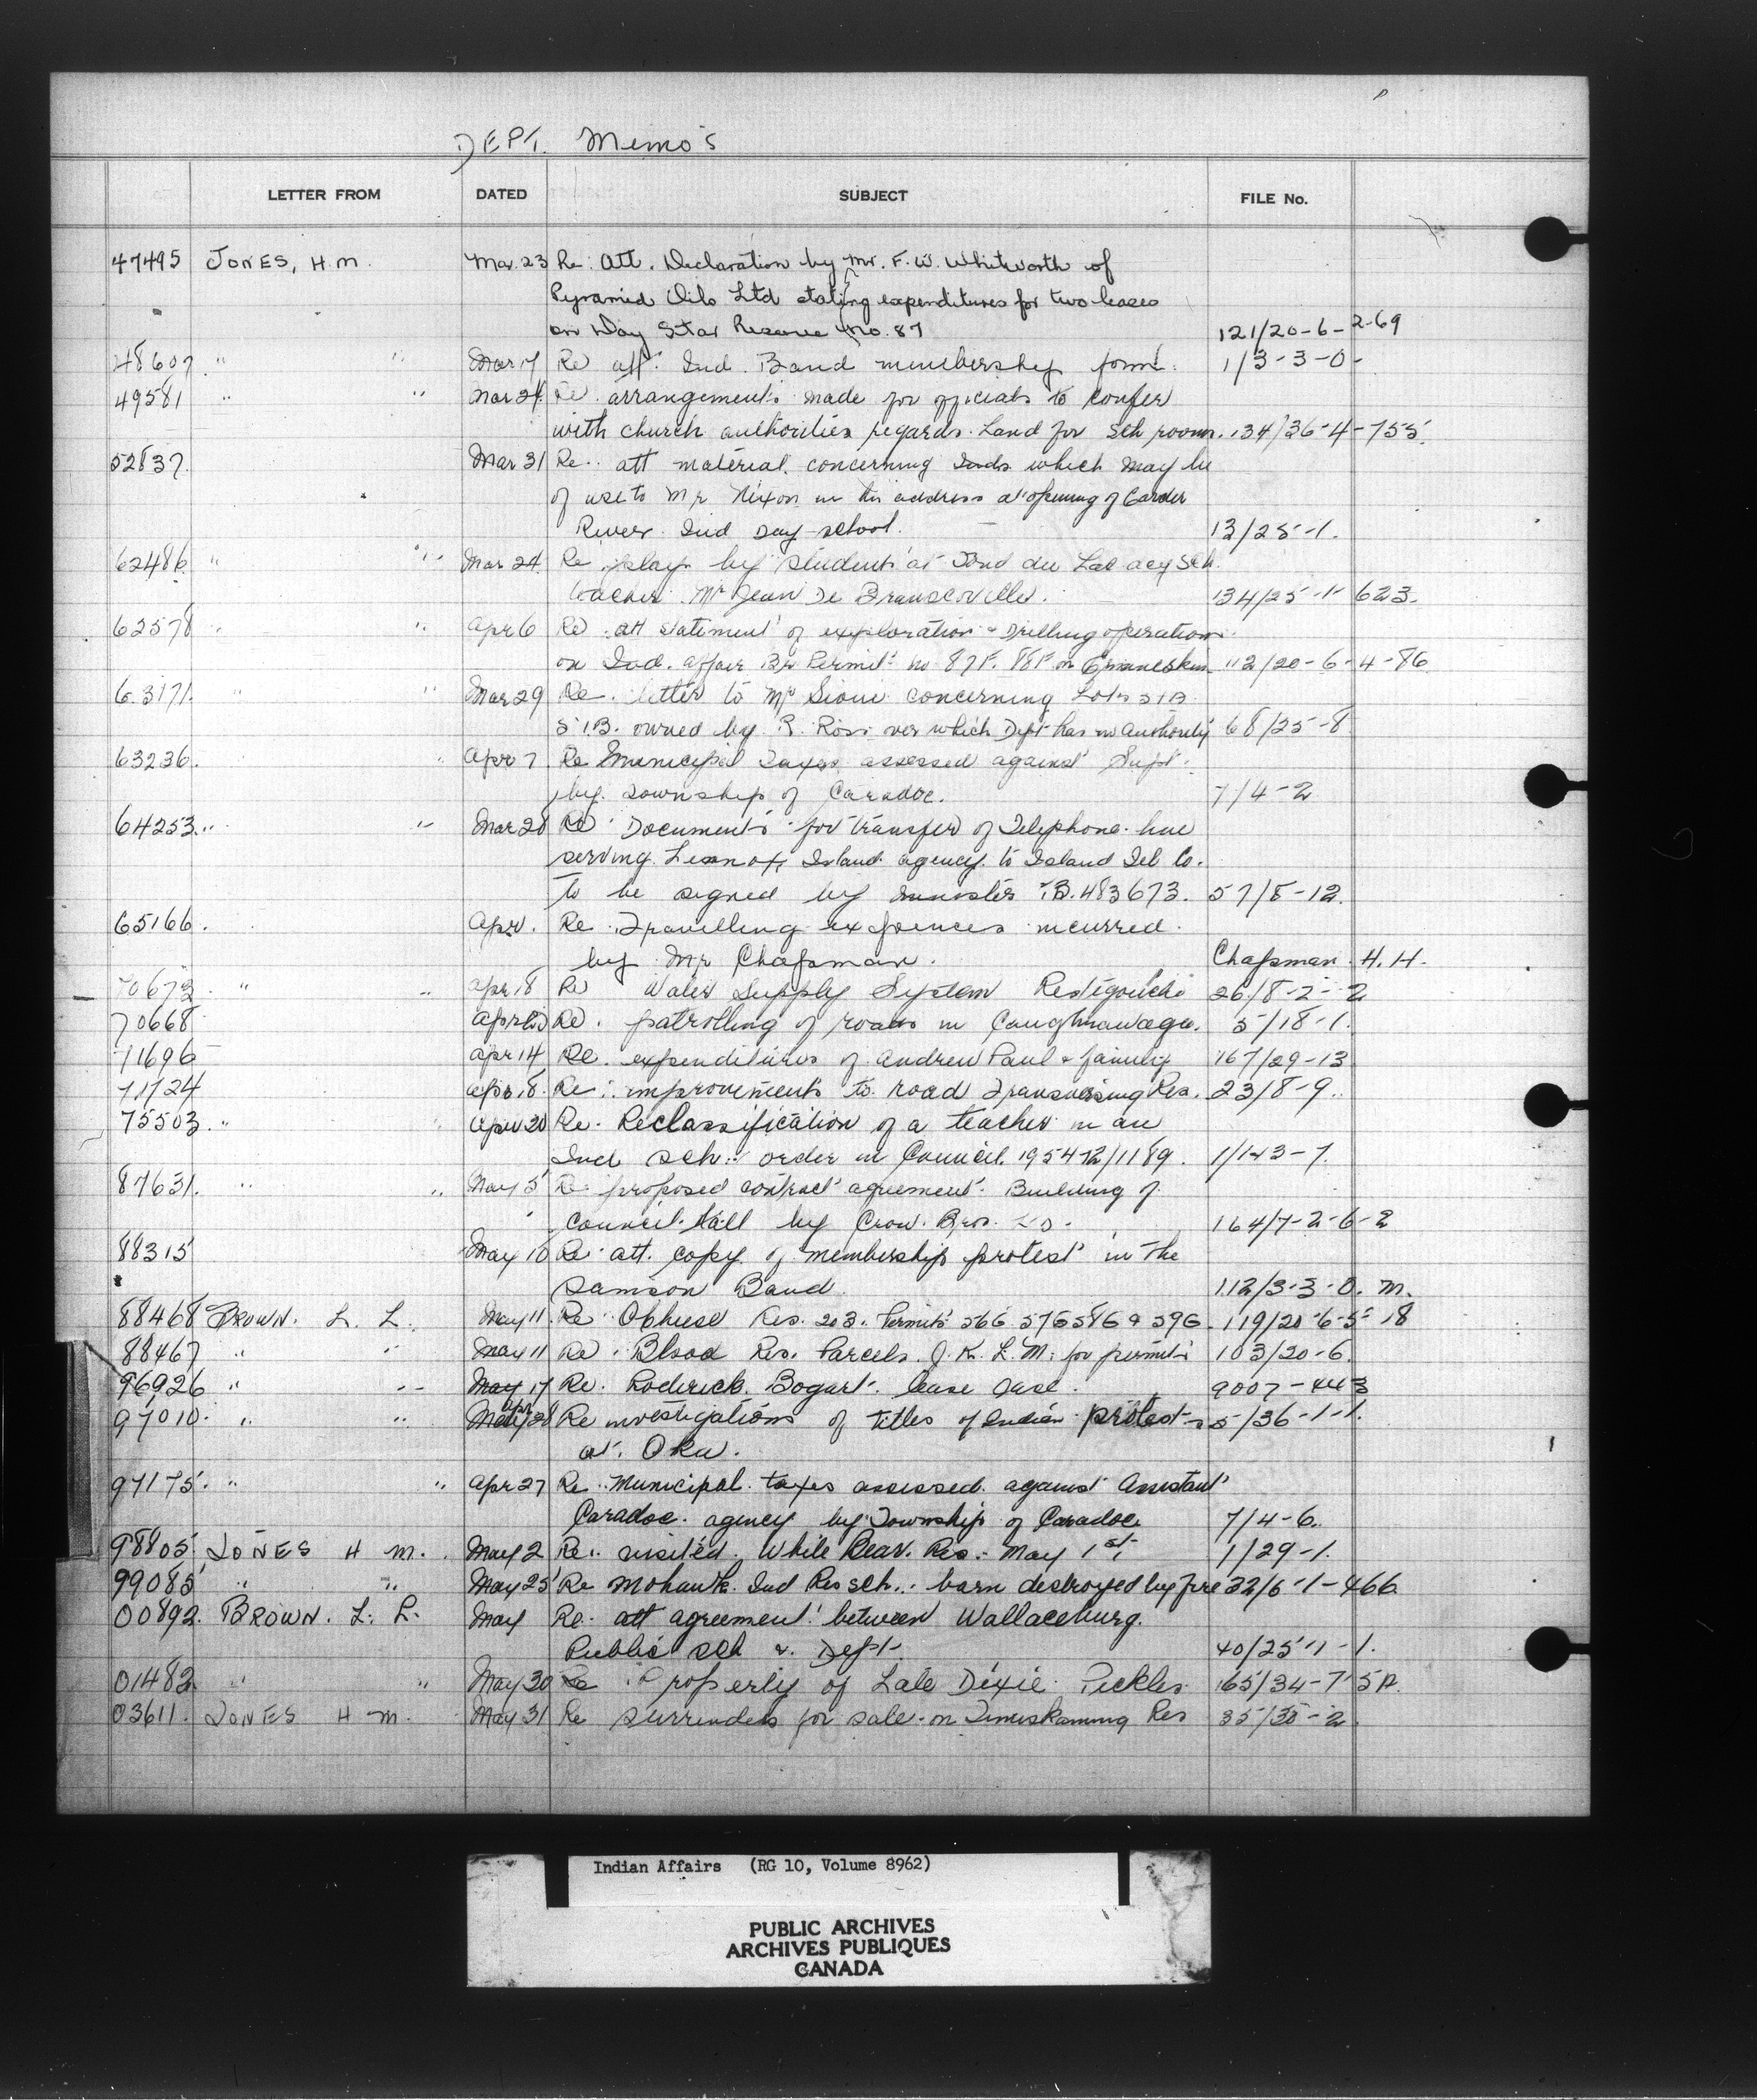 DEPT. Memo's
LETTER FROM DATED SUBJECT FILE No.
47495 JONES, H.M. Mar. 23 Re: Att. Declaration by Mr. F. W. Whitworth of
Pyramid Oils Ltd stating expenditures for two leases
on Day Star Reserve No. 87 121/20-6-2-69
48607 " " Mar 17 Re att. Ind. Band membership form. 1/3-3-0-
49581 " " Mar 24 Re arrangements made for officials to confer
with church authorities regards. Land for Sch room. 134/36-4-755.
52837. Mar 31 Re. att material concerning Inds which may be
of use to Mr Nixon in his address at opening of Garden
River Ind Day school. 13/25-1.
62486 " " Mar 24 Re plays by students at Fond du Lac acy Sch.
teacher Mr Jean De . 134/25-1-623.
62578 " Apr 6 Re att statement of exploration & Drilling operations
on Ind. affair Br Permit no 87F. 88F on Ermineskin 112/20-6-4-86
63171. " " Mar 29 Re. letter to Mr Sioui concerning Lots 51A
51B. owned by R. Ross over which Dept has no Authority 68/25-8
63236. " Apr 7. Re Municipal Taxes assessed against Supt.
by. Township of Caradoc. 7/4-2
64253 " " Mar 28 Re Documents for transfer of Telephone line
serving Lennox Island agency to Island Tel Co.
to be signed by minister TB. 483673. 57/8-12.
65166. Apr. Re Travelling expences incurred
by Mr Chapman. Chapman H. H.
70673 " " Apr 18 Re Water Supply System Restigouche 26/8-2-2
70668 Apr Re. patrolling of roads in Caughnawaga. 5/18-1.
71696 Apr 14 Re. expenditures of Andrew Paul & family 167/29-13
71724 Apr 18. Re: improvements to road Transversing Res. 23/8-9.
75503. " Apr 20 Re. Reclassification of a teacher in an
Ind Sch. order in Council. 1954-12/1189. 1/1-3-7
87631. " " May 5 Re proposed contract agreement. Building of
Council Hall by Crow Bros. 164/7-2-6-2
88315 May 10 Re att. copy of membership protest in the
Samson Band 112/3-3-0. M.
88468 BROWN. L. L. May 11. Re Res. 203. Permits 56G 57G 58G & 59G. 119/20-6-5-18
88467 " " May 11 Re. Blood Res. Parcels. J. K. L. M. for permits 103/20-6.
96926 " " May 17 Re. Roderick Bogart. lease case. 9007-443
97010. " " Apr 28 Re investigations of titles of Indian protest 5/36-1-1.
at. Oka.
97175. " " Apr 27 Re. Municipal taxes assessed against Assistant
Caradoc. agency by Township of Caradoc 7/4-6.
98805 JONES H M. May 2 Re. visited. White Bear. Res. May 1st. 1/29-1.
99085 " " May 25 Re Mohawk Ind Res sch. barn destroyed by fire 32/6-1-466
00892. BROWN. L. L. May Re. att agreement between Wallaceburg.
Public Sch & Dept. 40/25-1-1.
01482. " " May 30 Re Property of Late Dixie Pickles 165/34-7-5A.
03611. JONES H M. May 31 Re surrenders for sale on Timiskaming Res 35/30-2.
Indian Affairs (RG 10, Volume 8962)
PUBLIC ARCHIVES
ARCHIVES PUBLIQUES
CANADA